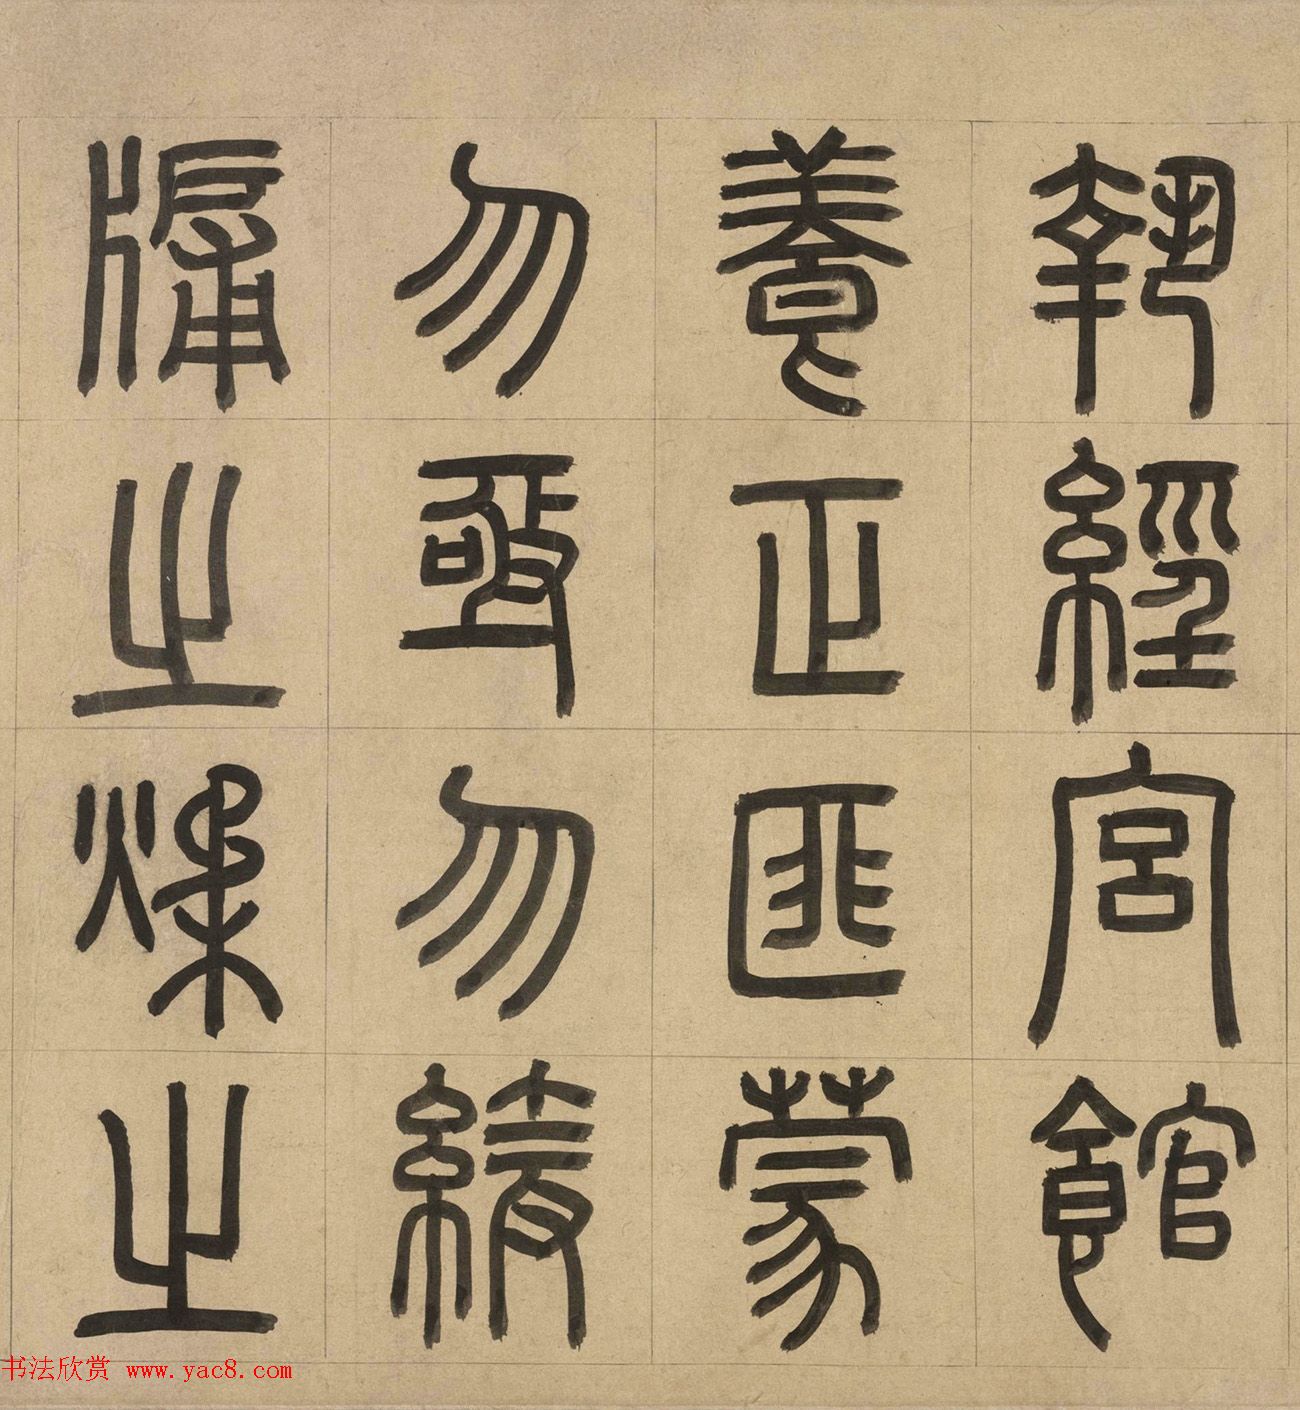 執經宮館
養正匪蒙
勿亟勿緩
牖之煣之
书法欣赏 www.yac8.com